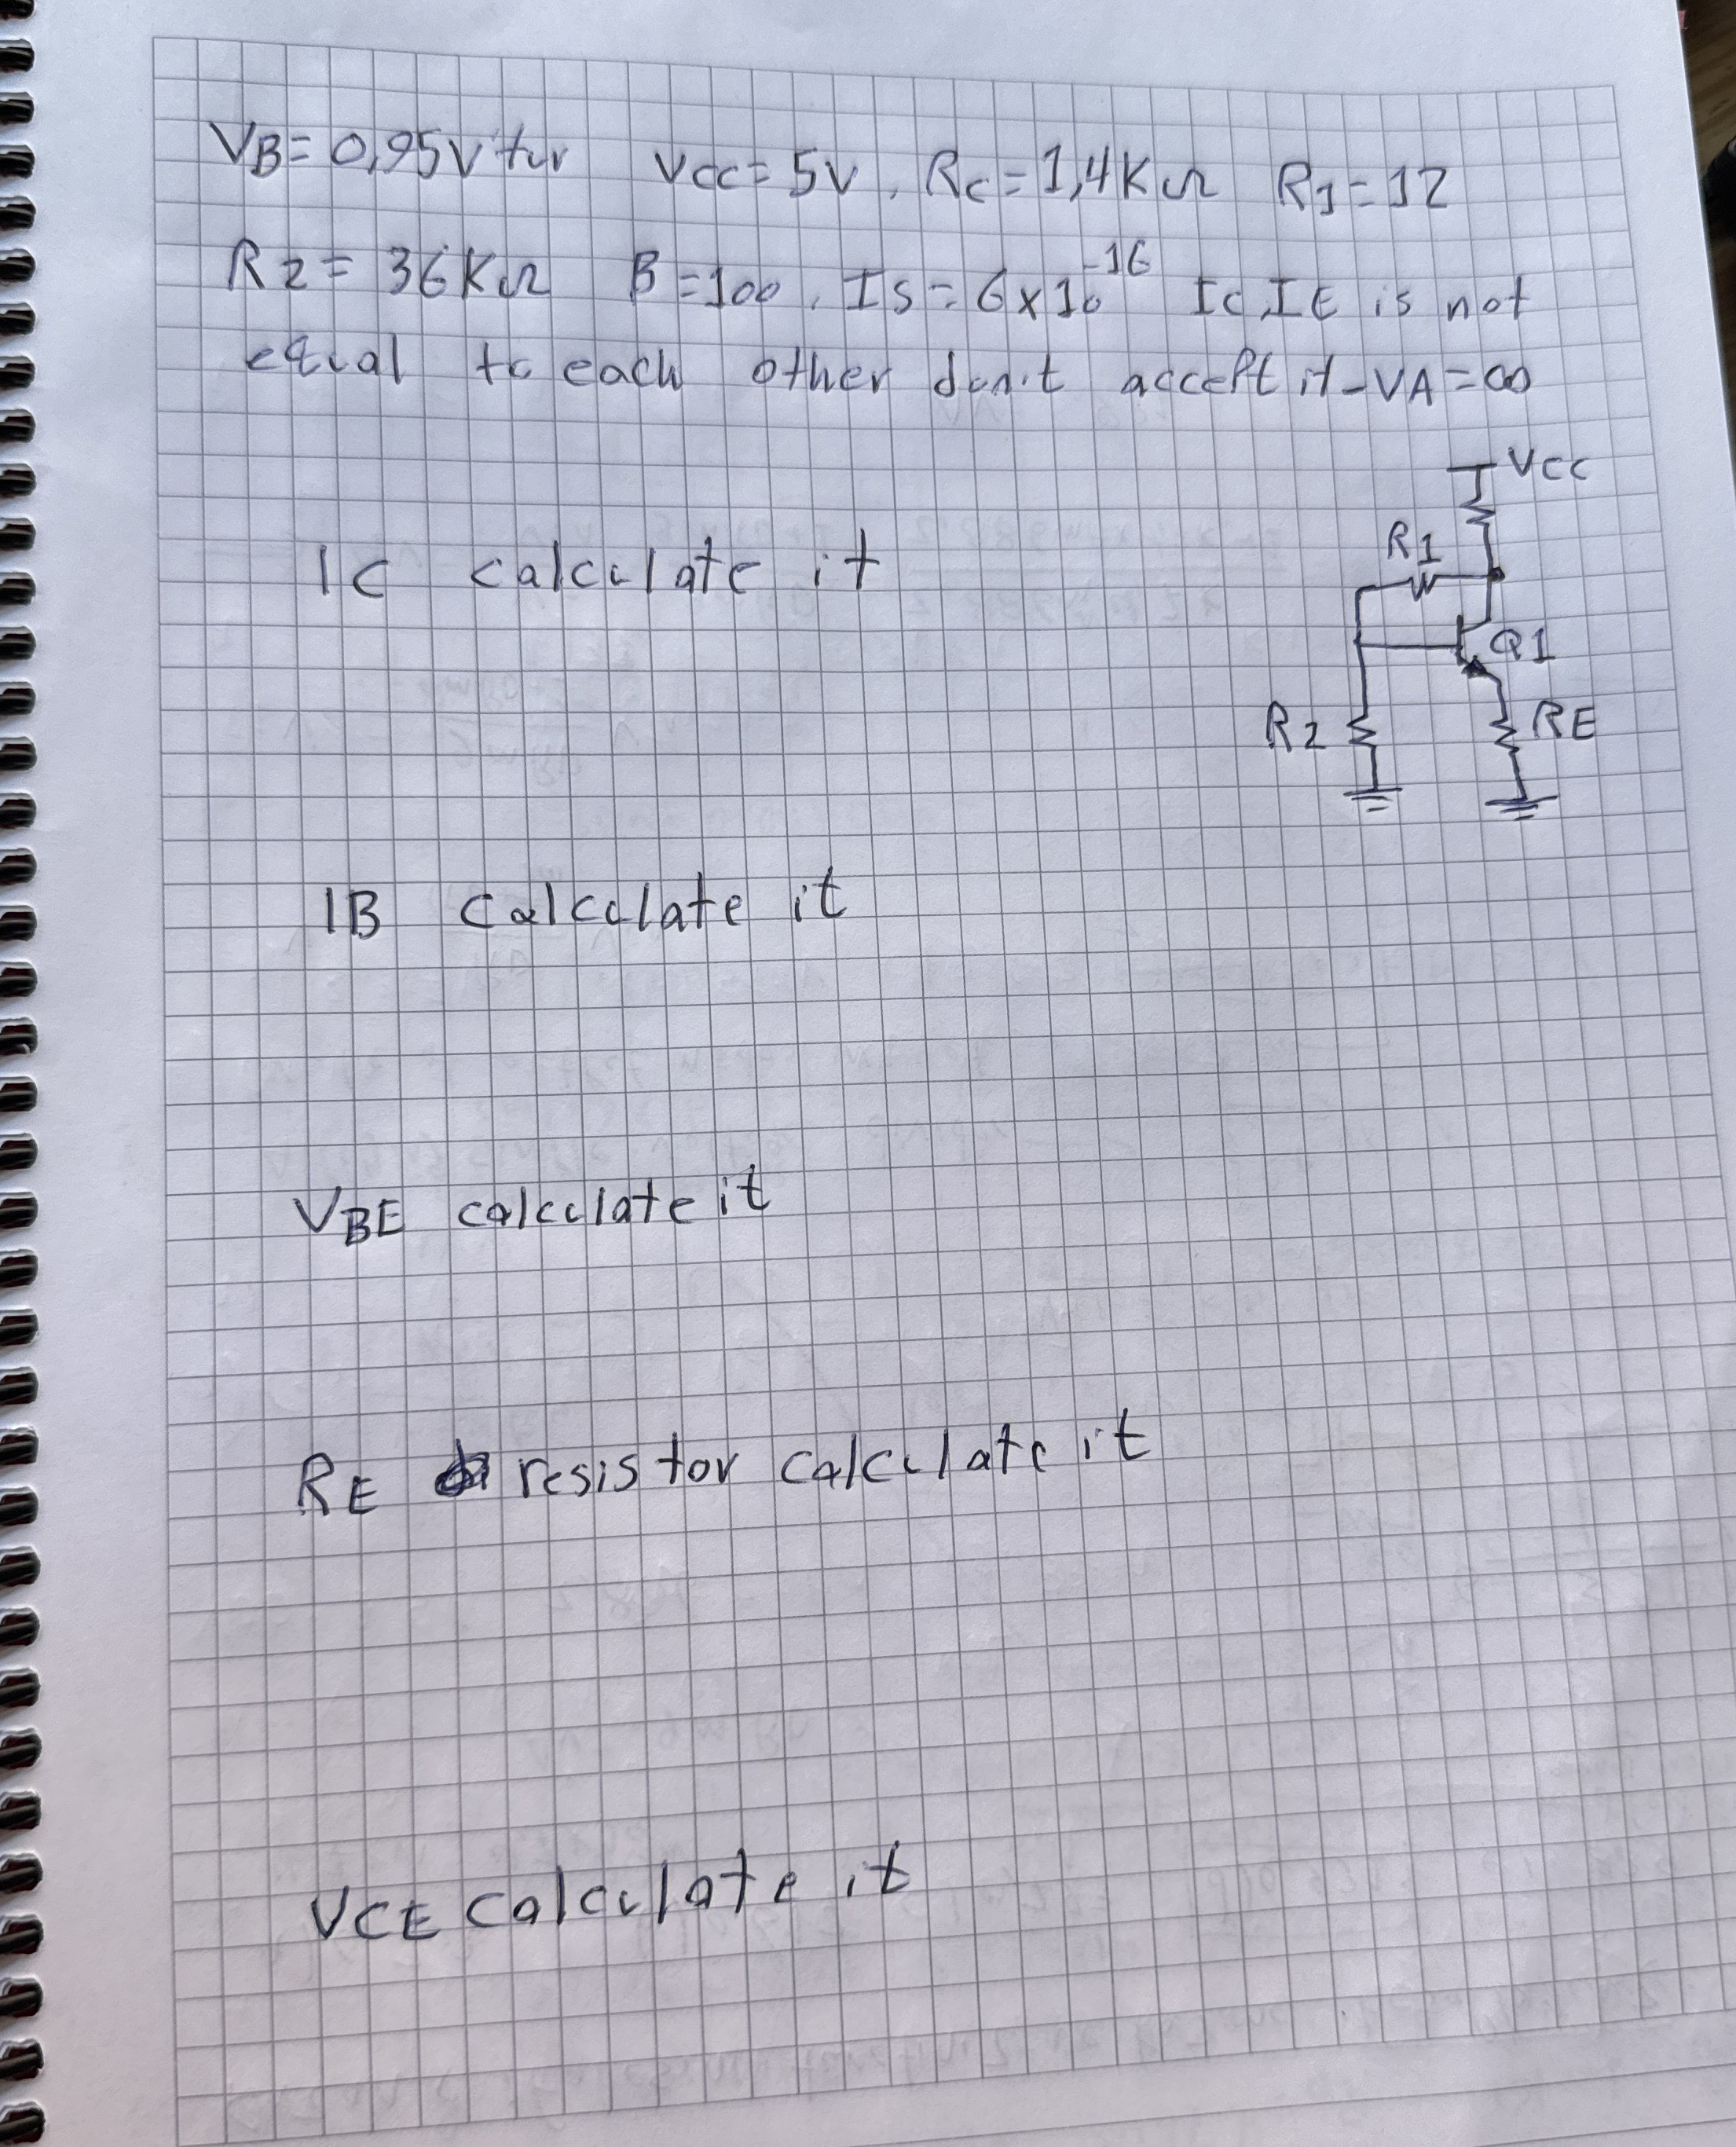 VB=0,95V'tur VCC=5V, RC=1,4KΩ R1=12
R2=36KΩ B=100, IS=6x10^-16 IC,IE is not
equal to each other don't accept it-VA=∞
VCC
R1
IC calculate it
Q1
R2 RE
IB calculate it
VBE calculate it
RE resistor calculate it
VCE calculate it